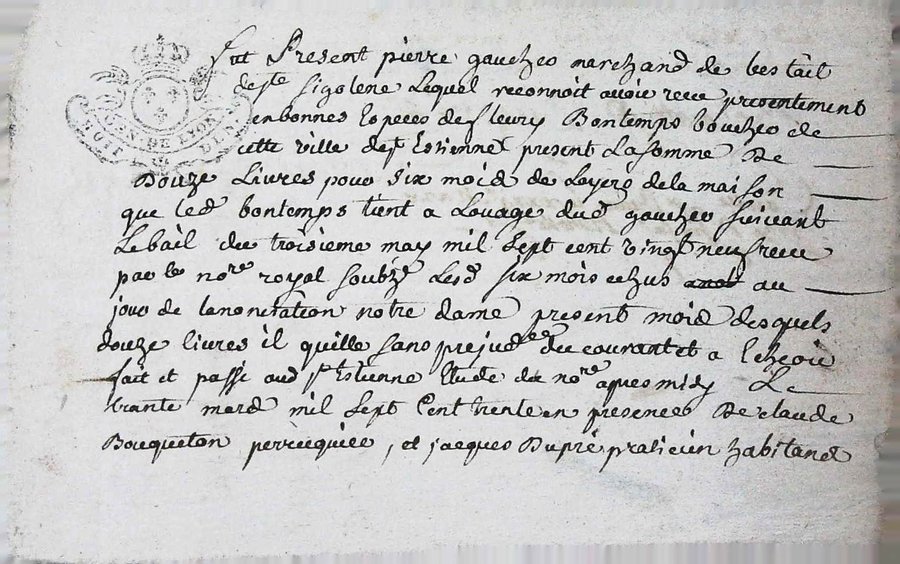 fut Present pierre gaucher marchand de bestail
de ste sigolene Lequel reconnoit avoir receu presentement
en bonnes Especes de fleury Bontemps boucher de
cette ville de st Estienne present La somme De
Douze Livres pour six mois de Loyers de la maison
que led bontemps tient a Louage dud gaucher suivant
Le bail du troisieme may mil sept cent vingt neuf receu
par le nore royal soubzé Lesd six mois echus au
jour de lanonciation notre dame present mois desquels
douze livres il quitte sans prejudce du courant et a Echeoir
fait et passé aud st Estienne Etude du nore apres midy Le
trante mard mil sept Cent trente en presences De claude
Bouqueton perruquier, et jacques Dupré praticien habitand
GEN DE LYON